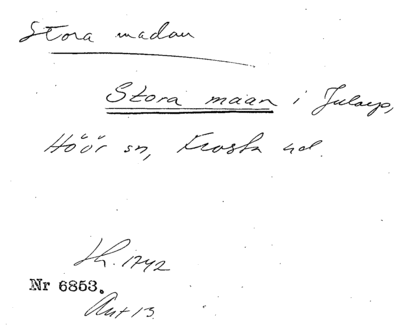 Stora madan
Stora maan i Jularp,
Höör sn, Frosta hd.
Lh. 1742
Nr 6853.
Akt 13